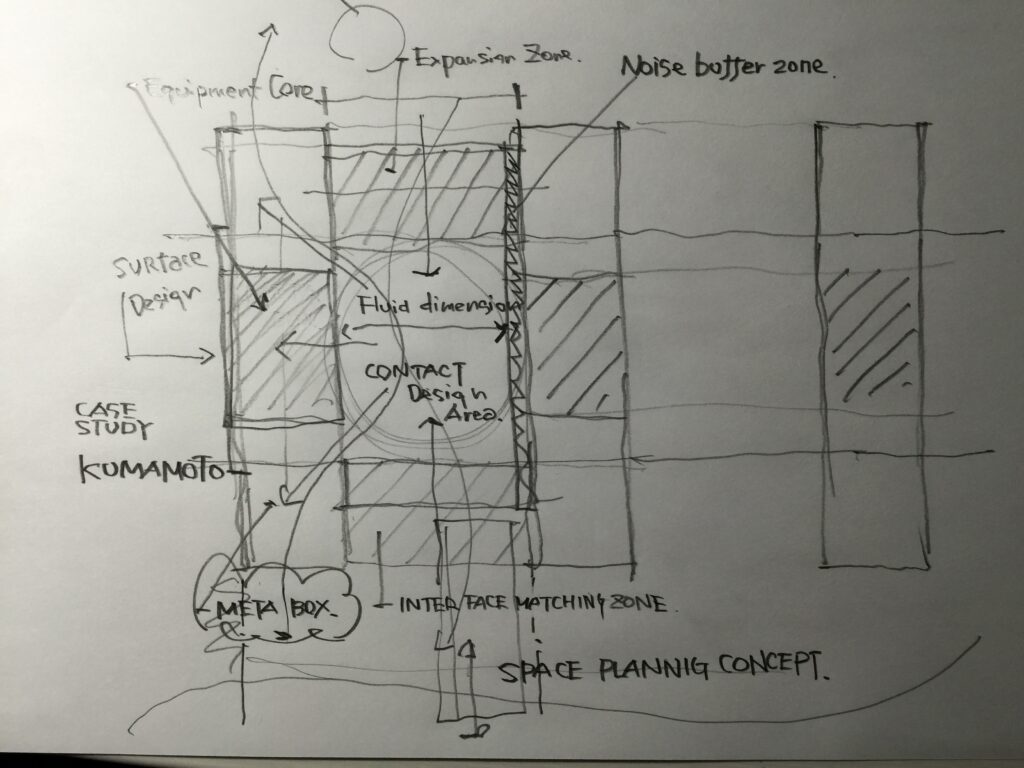 Expansion Zone.
Noise buffer zone.
Equipment Core
Surface
Design
Fluid dimension
CONTACT
Design
Area.
CASE
STUDY
KUMAMOTO
META BOX.
INTERFACE MATCHING ZONE.
SPACE PLANNIG CONCEPT.